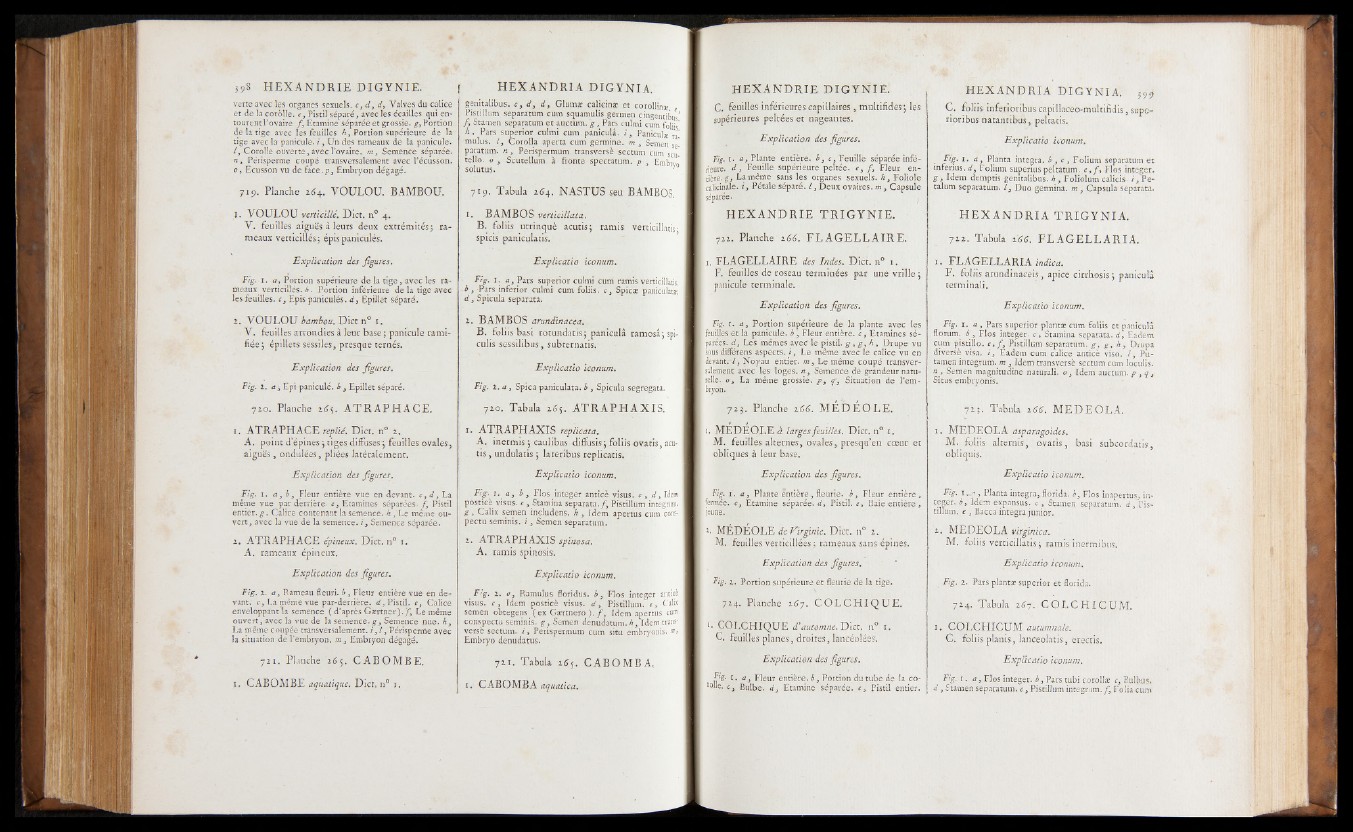 398 HEXANDRIE DIGYNIE.
verte avec les organes sexuels. c, d, d, Valves du calice
et de la corolle. e, Pistil séparé, avec les écailles qui en-
tourent l'ovaire f, Etamine séparée et grossie. g, Portion
de la tige avec les feuilles h, Portion supérieure de la
tige avec la panicule. i, Un des rameaux de la panicule.
l, Corolle ouverte, avec l'ovaire. m, Semence séparée.
n, Périsperme coupé transversalement avec l'écusson.
o, Ecusson vu de face. p, Embryon dégagé.
719. Planche 264. VOULOU. BAMBOU.
1. VOULOU verticillé. Dict. n° 4.
V. feuilles aiguës à leurs deux extrémités; ra-
meaux verticillés; épis paniculés.
Explication des figures.
Fig. 1. a, Portion supérieure de la tige, avec les ra-
meaux verticillés. b, Portion inférieure de la tige avec
les feuilles. c, Epis paniculés. d, Epillet séparé.
2. VOULOU bambou. Dict n° 1.
V. feuilles arrondies à leur base; panicule rami-
fiée; épillets sessiles, presque ternés.
Explication des figures.
Fig. 2. a, Epi paniculé. b, Epillet séparé.
720. Planche 265. ATRAPHACE.
1. ATRAPHACE replié. Dict. n° 2.
A. point d'épines; tiges diffuses; feuilles ovales,
aiguës, ondulées, pliées latéralement.
Explication des figures.
Fig. 1. a, b, Fleur entière vue en devant. c, d, La
même vue par derrière e, Etamines séparées. f, Pistil
entier. g, Calice contenant la semence. h, Le même ou-
vert, avec la vue de la semence. i, Semence séparée.
2. ATRAPHACE épineux. Dict. n° 1.
A. rameaux épineux.
Explication des figures.
Fig. 2. a, Rameau fleuri. b, Fleur entière vue en de-
vant. c, La même vue par-derrière. d, Pistil. e, Calice
enveloppant la semence (d'après Gærtner). f, Le même
ouvert, avec la vue de la semence. g, Semence nue. h,
La même coupée transversalement. i, l, Périsperme avec
la situation de l'embryon. m, Embryon dégagé.
721. Planche 265. CABOMBE.
1. CABOMBE aquatique. Dict. n° 1.
HEXANDRIA DIGYNIA.
genitalibus. c, d, d, Glumæ calicinæ et corollinæ. e,
Pistillum separatum cum squamulis germen cingentibus.
f, Stamen separatum et auctum. g, Pars culmi cum foliis.
h, Pars superior culmi cum paniculâ. i, Paniculæ ra-
mulus. l, Corolla aperta cum germine. m, Semen se-
paratum. n, Perispermum transversè sectum cum scu-
tello. o, Scutellum à fronte spectatum. p, Embryo
solutus.
719. Tabula 264. NASTUS seu BAMBOS.
1. BAMBOS verticillata.
B. foliis utrinquè acutis; ramis verticillatis;
spicis paniculatis.
Explicatio iconum.
Fig. 1. a, Pars superior culmi cum ramis verticillatis.
b, Pars inferior culmi cum foliis. c, Spicæ paniculatæ.
d, Spicula separata.
2. BAMBOS arundinacea.
B. foliis basi rotundatis; paniculâ ramosâ; spi-
culis sessilibus, subternatis.
Explicatio iconum.
Fig. 2. a, Spica paniculata. b, Spicula segregata.
720. Tabula 265. ATRAPHAXIS.
1. ATRAPHAXIS replicata.
A. inermis; caulibus diffusis; foliis ovatis, acu-
tis, undulatis; lateribus replicatis.
Explicatio iconum.
Fig. 1. a, b, Flos integer anticè visus. c, d, Idem
posticè visus. e, Stamina separata. f, Pistillum integrum.
g, Calix semen includens. h, Idem apertus cum cons-
pectu seminis. i, Semen separatum.
2. ATRAPHAXIS spinosa.
A. ramis spinosis.
Explicatio iconum.
Fig. 2. a, Ramulus floridus. b, Flos integer anticè
visus. c, Idem posticè visus. d, Pistillum. e, Calix
semen obtegens (ex Gærtnero). f, Idem apertus cum
conspectu seminis. g, Semen denudatum. h, Idem trans-
versè sectum. i, Perispermum cum situ embryonis. m,
Embryo denudatus.
721. Tabula 265. CABOMBA.
1. CABOMBA aquatica.
HEXANDRIE DIGYNIE.
C. feuilles inférieures capillaires, multifides; les
supérieures peltées et nageantes.
Explication des figures.
Fig. 1. a, Plante entière. b, c, Feuille séparée infé-
rieure. d, Feuille supérieure peltée. e, f, Fleur en-
tière. g, La même sans les organes sexuels. h, Foliole
calicinale. i, Pétale séparé. l, Deux ovaires. m, Capsule
séparée.
HEXANDRIE TRIGYNIE.
722. Planche 266. FLAGELLAIRE.
1. FLAGELLAIRE des Indes. Dict. n° 1.
F. feuilles de roseau terminées par une vrille;
panicule terminale.
Explication des figures.
Fig. 1. a, Portion supérieure de la plante avec les
feuilles et la panicule. b, Fleur entière. c, Etamines sé-
parées. d, Les mêmes avec le pistil. g, g, h, Drupe vu
sous différens aspects. i, Le même avec le calice vu en
devant. l, Noyau entier. m, Le même coupé transver-
salement avec les loges. n, Semence de grandeur natu-
relle. o, La même grossie. p, q, Situation de l'em-
bryon.
723. Planche 266. MÉDÉOLE.
1. MÉDÉOLE à larges feuilles. Dict. n° 1.
M. feuilles alternes, ovales, presqu'en cœur et
obliques à leur base.
Explication des figures.
Fig. 1. a, Plante entière, fleurie. b, Fleur entière,
fermée. c, Etamine séparée. d, Pistil. e, Baie entière,
jeune.
2. MÉDÉOLE de Virginie. Dict. n° 2.
M. feuilles verticillées; rameaux sans épines.
Explication des figures.
Fig. 2. Portion supérieure et fleurie de la tige.
724. Planche 267. COLCHIQUE.
1. COLCHIQUE d'automne. Dict. n° 1.
C. feuilles planes, droites, lancéolées.
Explication des figures.
Fig. 1. a, Fleur entière. b, Portion du tube de la co-
rolle. c, Bulbe. d, Etamine séparée. e, Pistil entier.
HEXANDRIA DIGYNIA. 399
C. foliis inferioribus capillaceo-multifidis, supe-
rioribus natantibus, peltatis.
Explicatio iconum.
Fig. 1. a, Planta integra. b, c, Folium separatum et
inferius. d, Folium superius peltatum. e, f, Flos integer.
g, Idem demptis genitalibus. h, Foliolum calicis i, Pe-
talum separatum. l, Duo germina. m, Capsula separata.
HEXANDRIA TRIGYNIA.
722. Tabula 266. FLAGELLARIA.
1. FLAGELLARIA indica.
F. foliis arundinaceis, apice cirrhosis; paniculâ
terminali.
Explicatio iconum.
Fig. 1. a, Pars superior plantæ cum foliis et paniculâ
florum. b, Flos integer. c, Stamina separata. d, Eadem
cum pistillo. e, f, Pistillum separatum. g, g, h, Drupa
diversè visa. i, Eadem cum calice anticè viso. l, Pu-
tamen integrum. m, Idem transversè sectum cum loculis.
n, Semen magnitudine naturali. o, Idem auctum. p, q,
Situs embryonis.
723. Tabula 266. MEDEOLA.
1. MEDEOLA asparagoides.
M. foliis alternis, ovatis, basi subcordatis,
obliquis.
Explicatio iconum.
Fig. 1. a, Planta integra, florida. b, Flos inapertus, in-
teger. b, Idem expansus. c, Stamen separatum. d, Pis-
tillum. e, Bacca integra junior.
2. MEDEOLA virginica.
M. foliis verticillatis; ramis inermibus.
Explicatio iconum.
Fig. 2. Pars plantæ superior et florida.
724. Tabula 267. COLCHICUM.
1. COLCHICUM autumnale.
C. foliis planis, lanceolatis, erectis.
Explicatio iconum.
Fig. 1. a, Flos integer. b, Pars tubi corollæ c, Bulbus.
d, Stamen separatum. e, Pistillum integrum. f, Folia cum